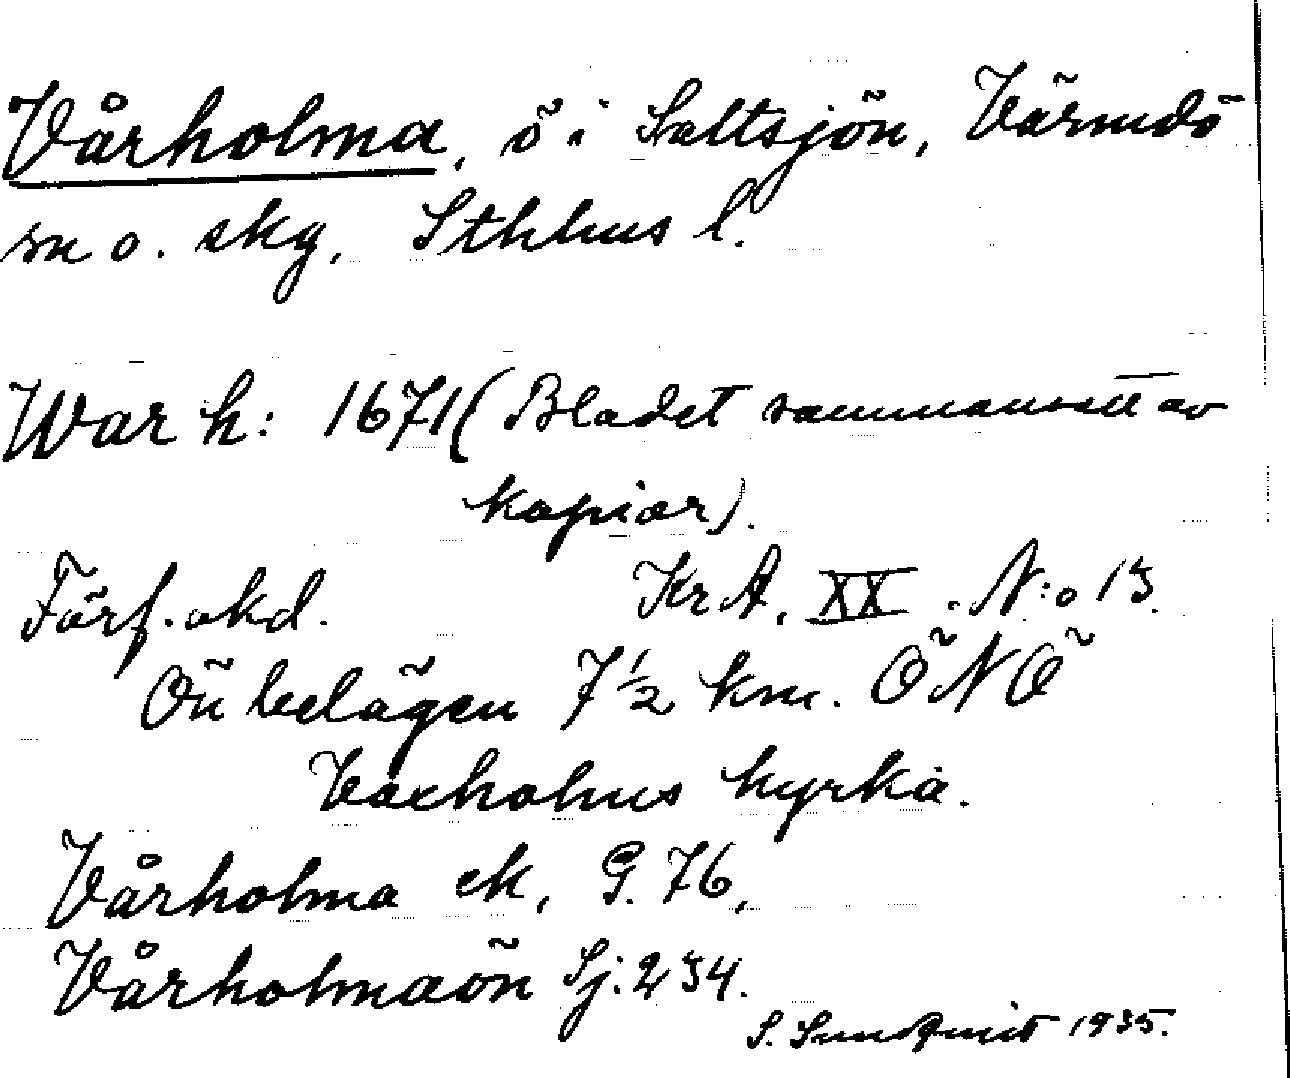 Vårholma, ö i Saltsjön, Värmdö
sn o. skg, Sthlms l.
War h: 1671 (Bladet sammansatt av
kopior).
Förf. okd. KrA, XX. N:o 13.
Ön belägen 7 1/2 km. ÖNÖ
Vaxholms kyrka.
Vårholma ek, G. 76,
Vårholmaön Sj. 234.
S. Sundqvist 1935.